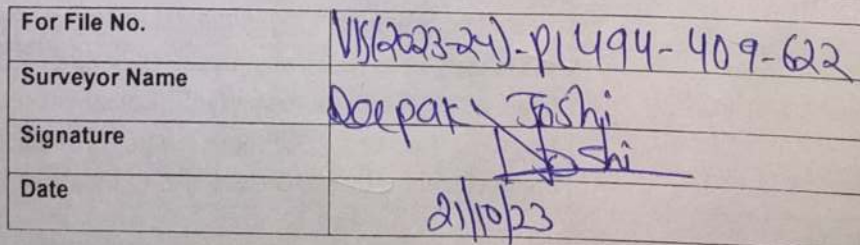 For File No. VIS(2023-24)-PL494-409-622
Surveyor Name Deepak Joshi
Signature Joshi
Date 21/10/23